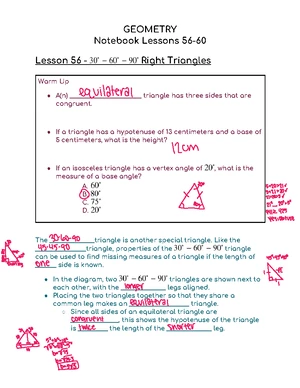 GEOMETRY
Notebook Lessons 56-60
Lesson 56 - 30° – 60° – 90° Right Triangles
Warm Up
• A(n) equilateral triangle has three sides that are
congruent.
• If a triangle has a hypotenuse of 13 centimeters and a base of
5 centimeters, what is the height?
12cm
• If an isosceles triangle has a vertex angle of 20°, what is the
measure of a base angle?
A. 60°
B. 80°
C. 75°
D. 20°
The 30-60-90 triangle is another special triangle. Like the
45-45-90 triangle, properties of the 30° – 60° – 90° triangle
can be used to find missing measures of a triangle if the length of
one side is known.
• In the diagram, two 30° – 60° – 90° triangles are shown next to
each other, with the longer legs aligned.
• Placing the two triangles together so that they share a
common leg makes an equilateral triangle.
○ Since all sides of an equilateral triangle are
congruent, this shows the hypotenuse of the triangle
is twice the length of the shorter leg.